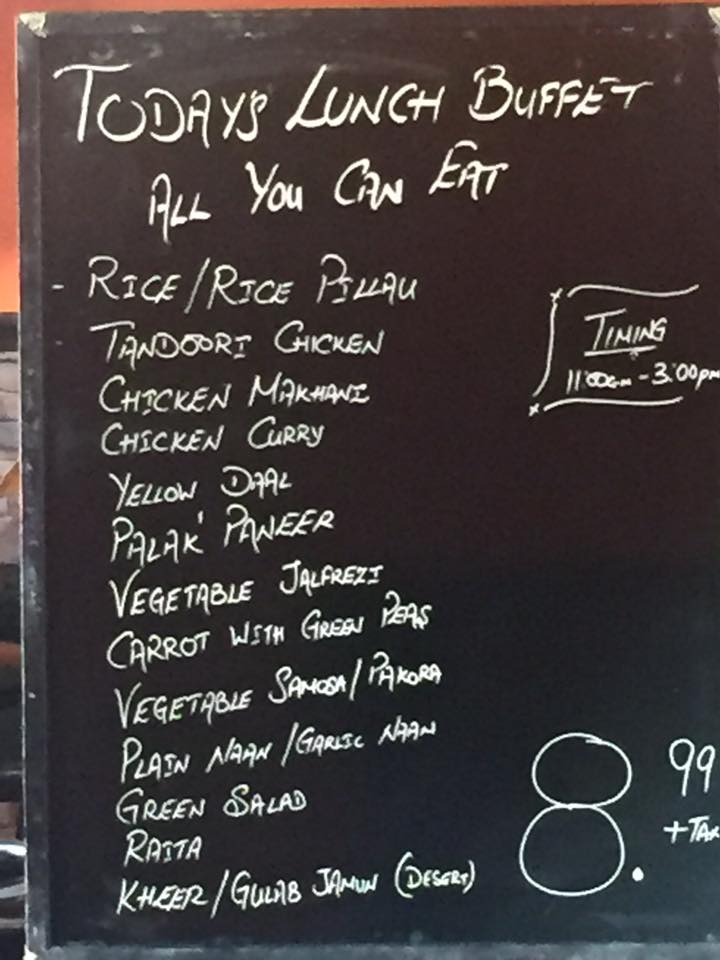 TODAY'S LUNCH BUFFET
ALL YOU CAN EAT
- RICE/RICE PILLAU
TANDOORI CHICKEN
CHICKEN MAKHANI
CHICKEN CURRY
YELLOW DAAL
PALAK' PANEER
VEGETABLE JALFREZI
CARROT WITH GREEN PEAS
VEGETABLE SAMOSA/PAKORA
PLAIN NAAN/GARLIC NAAN
GREEN SALAD
RAITA
KHEER/GULAB JAMUN (DESERT)
TIMING
11:00am-3:00pm
8.99
+TAX